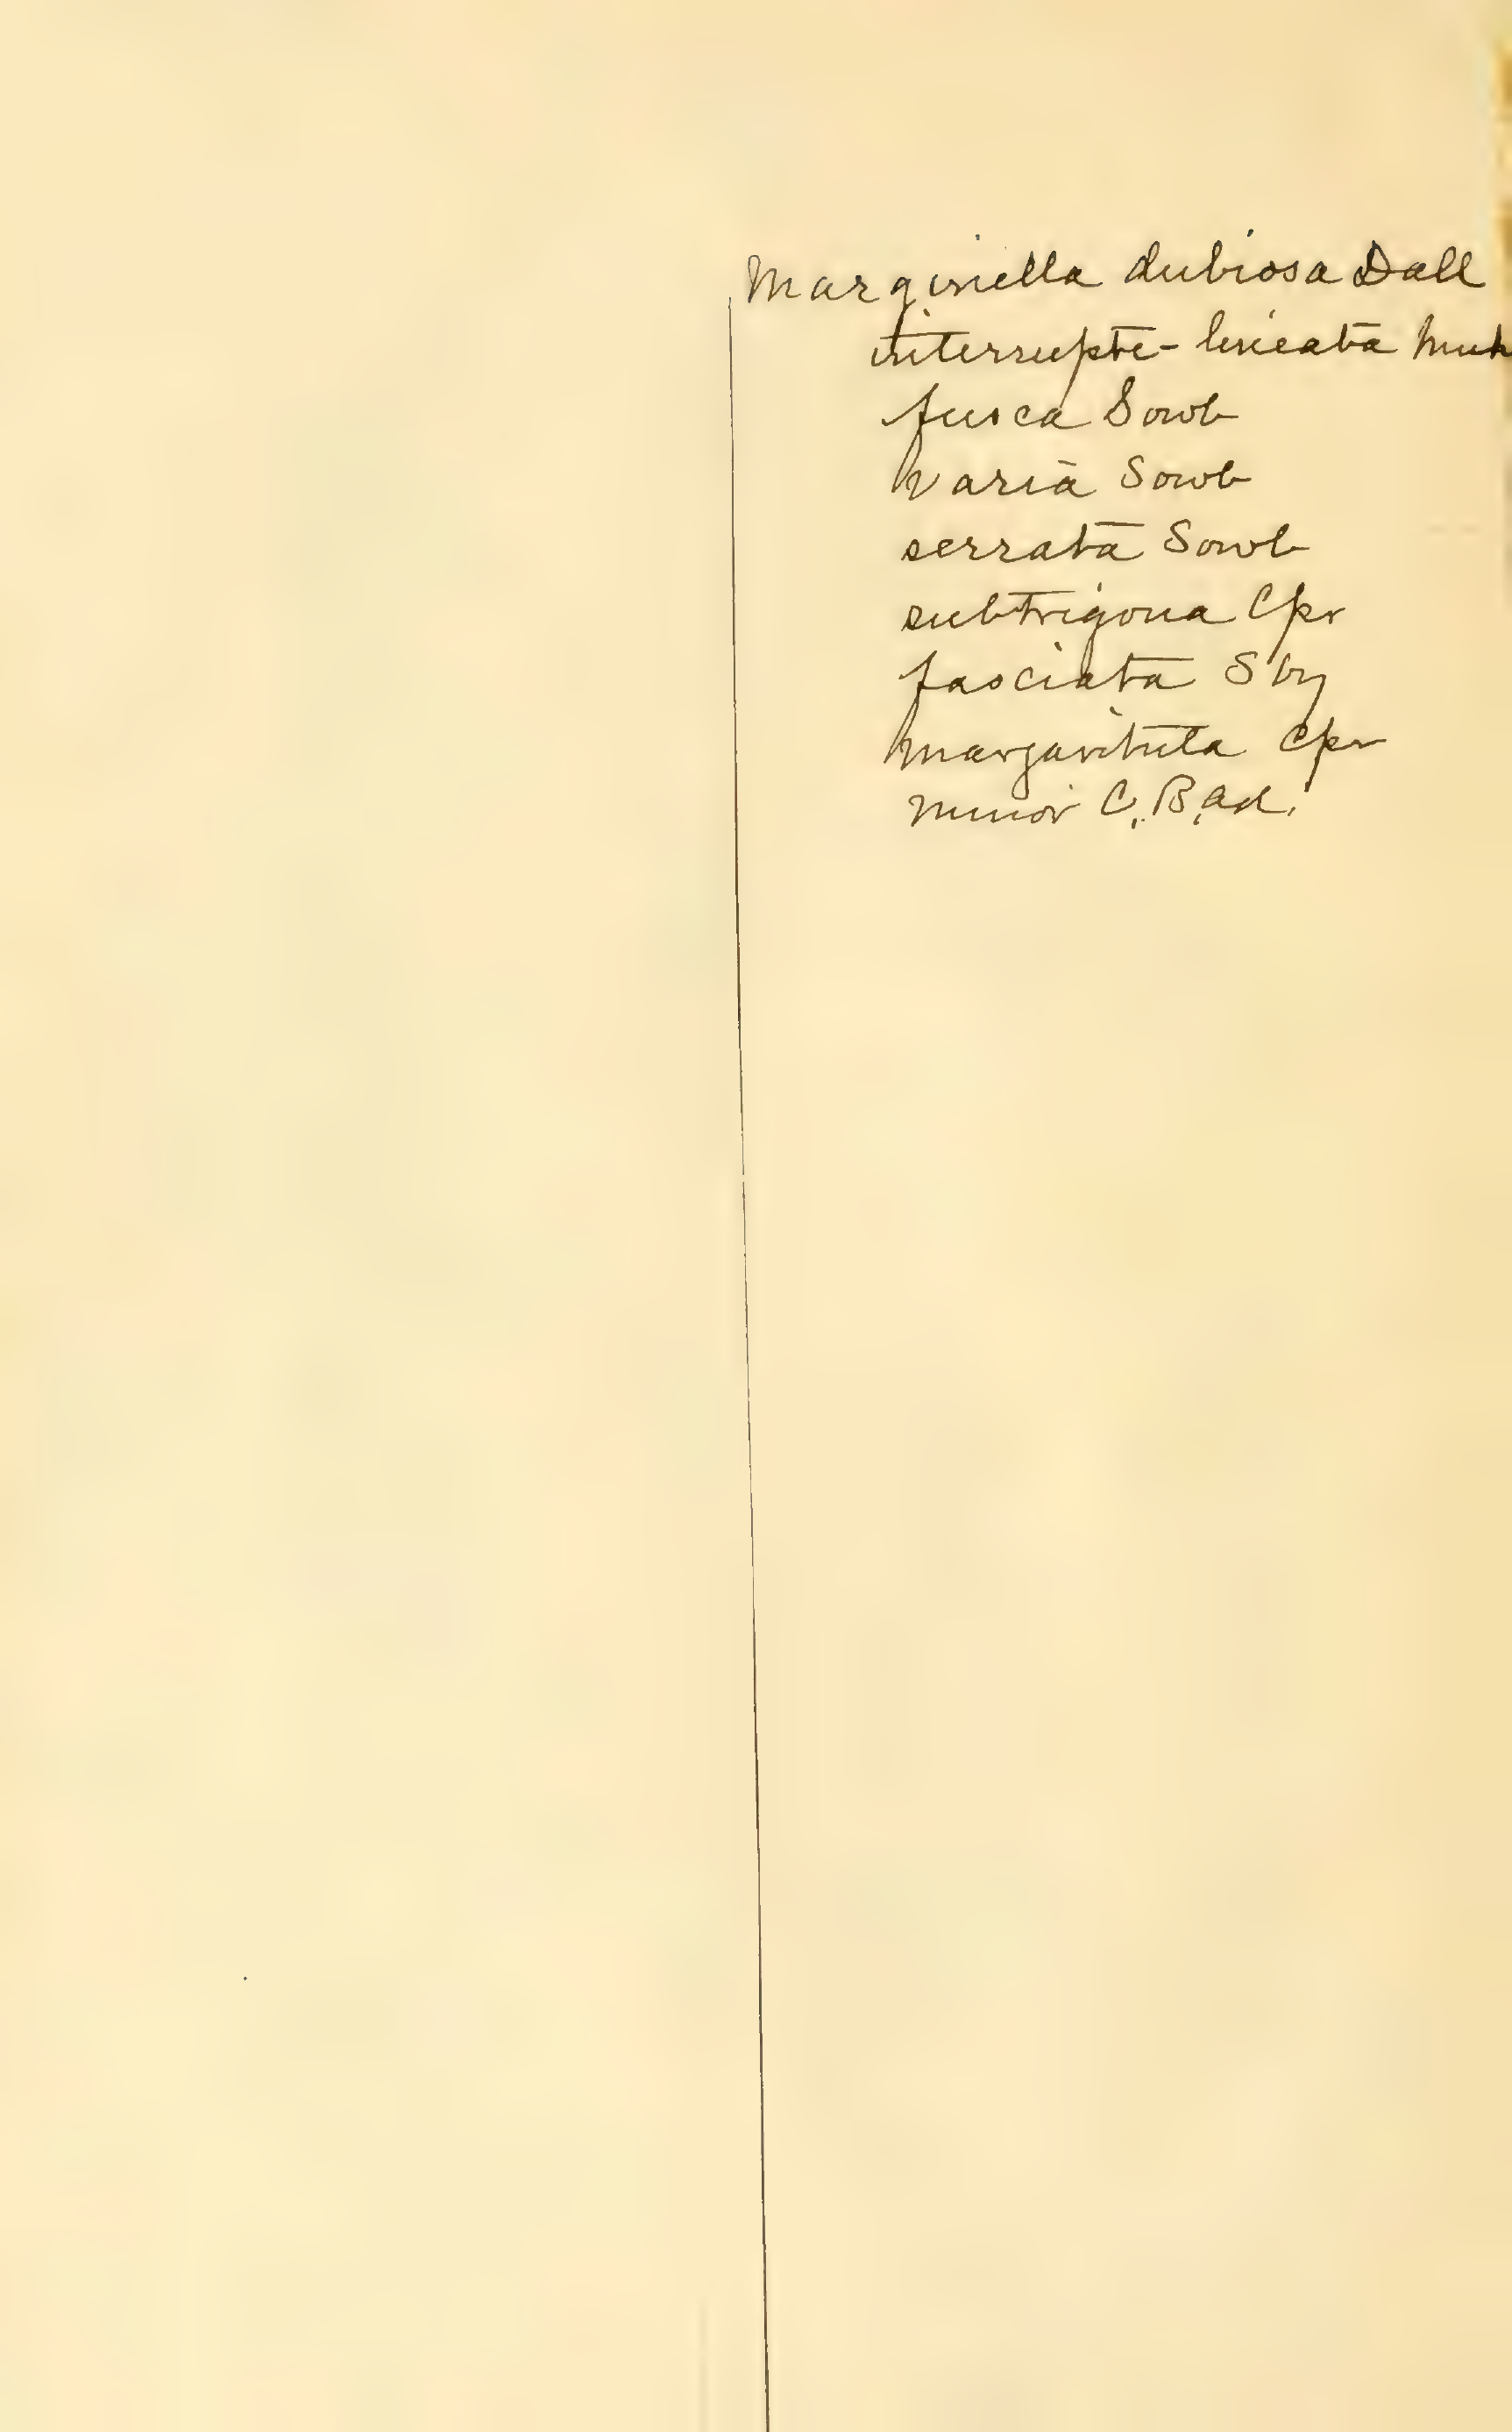 Marginella dubiosa Dall
interrupte-lineata Muh
fusca Sowb
varia Sowb
serrata Sowb
subtrigona Cpr
fasciata Sby
margaritula Cpr
minor C. B. Ad.